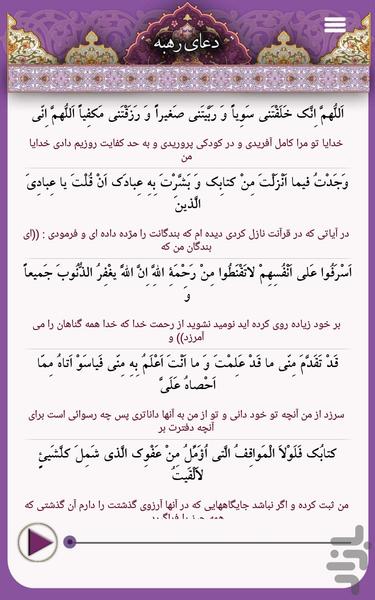 دعای رهبه
اَللّهُمَّ اِنَّک خَلَقْتَنی سَوِیاً وَ رَبَّیتَنی صَغیراً وَ رَزَقْتَنی مَکفِیاً اَللّهُمَّ اِنّی
خدایا تو مرا کامل آفریدی و در کودکی پروریدی و به حد کفایت روزیم دادی خدایا
من
وَجَدْتُ فیما اَنْزَلْتَ مِنْ کتابِک وَ بَشَّرْتَ بِهِ عِبادَک اَنْ قُلْتَ یا عِبادِیَ
الَّذینَ
در آیاتی که در قرآنت نازل کردی دیده ام که بندگانت را مژده داده ای و فرمودی : ((ای
بندگان من که
اَسْرَفُوا عَلی اَنْفُسِهِمْ لاتَقْنَطُوا مِنْ رَحْمَةِ اللَّهِ اِنَّ اللَّهَ یغْفِرُ الذُّنُوبَ جَمیعاً
وَ
بر خود زیاده روی کرده اید نومید نشوید از رحمت خدا که خدا همه گناهان را می
آمرزد)) و
قَدْ تَقَدَّمَ مِنّی ما قَدْ عَلِمْتَ وَ ما اَنْتَ اَعْلَمُ بِهِ مِنّی فَیاسَوْ اَتاهُ مِمّا
اَحْصاهُ عَلَیَّ
سرزد از من آنچه تو خود دانی و تو از من به آنها داناتری پس چه رسوائی است برای
آنچه دفترت بر
کتابُک فَلَوْلاَ الْمَواقِفُ الَّتی اُؤَمِّلُ مِنْ عَفْوِک الَّذی شَمِلَ کلَّشَیئٍ
لاَلْقَیتُ
من ثبت کرده و اگر نباشد جایگاههایی که در آنها آرزوی گذشتت را دارم آن گذشتی که
بازار